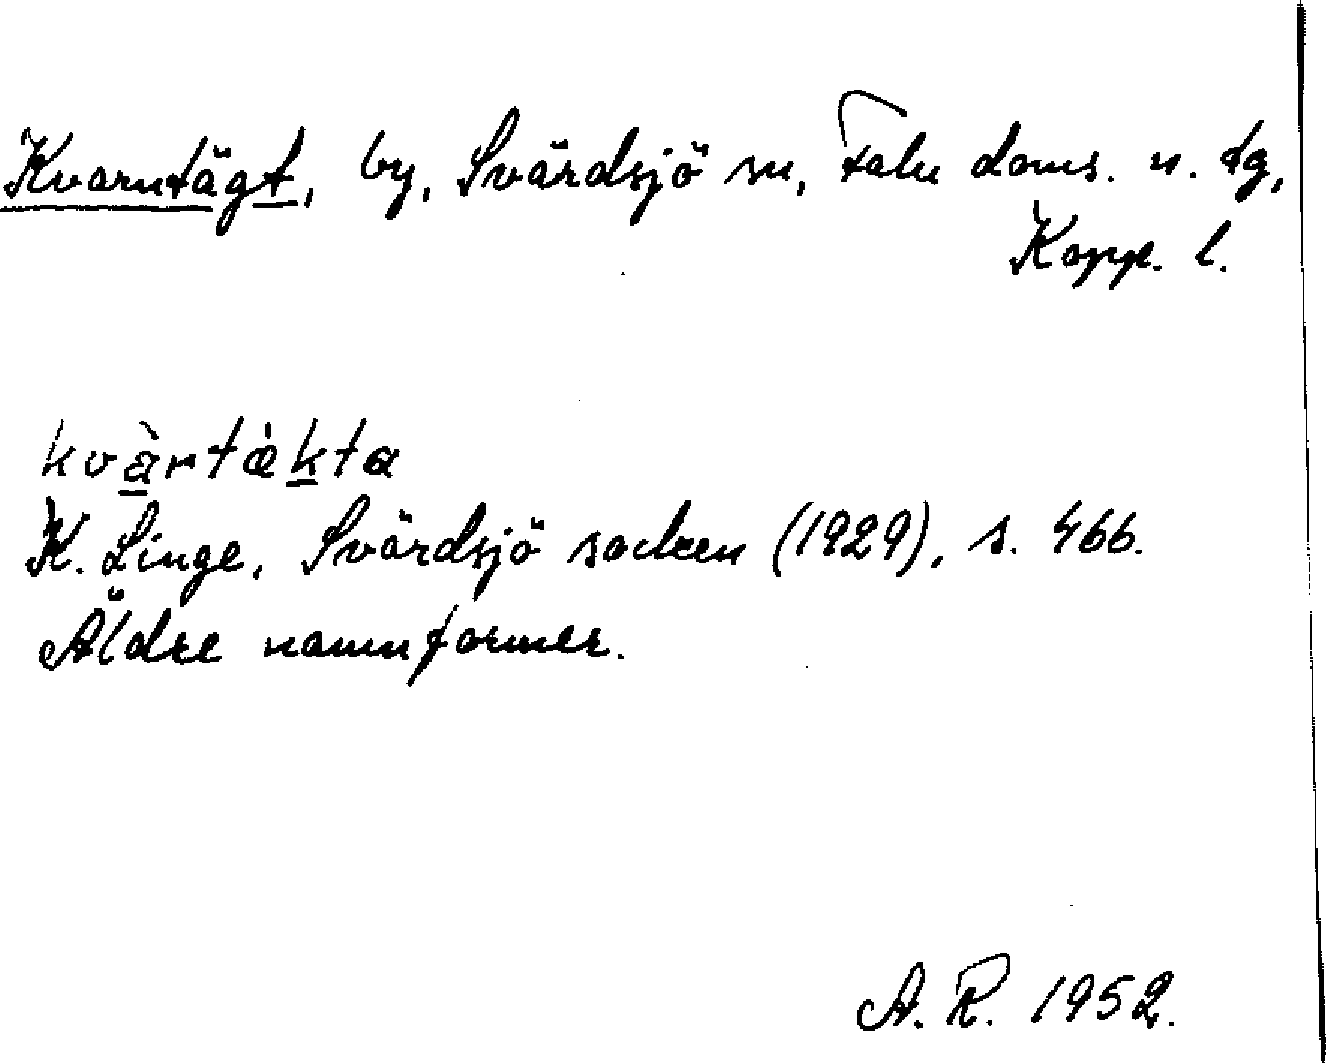 Kvarntägt, by, Svärdsjö sn, Falu doms. n. tg,
Kopp. l.
kvàrtàkta
K. Linge, Svärdsjö socken (1929), s. 466.
Äldre namnformer.
A. R. 1952.